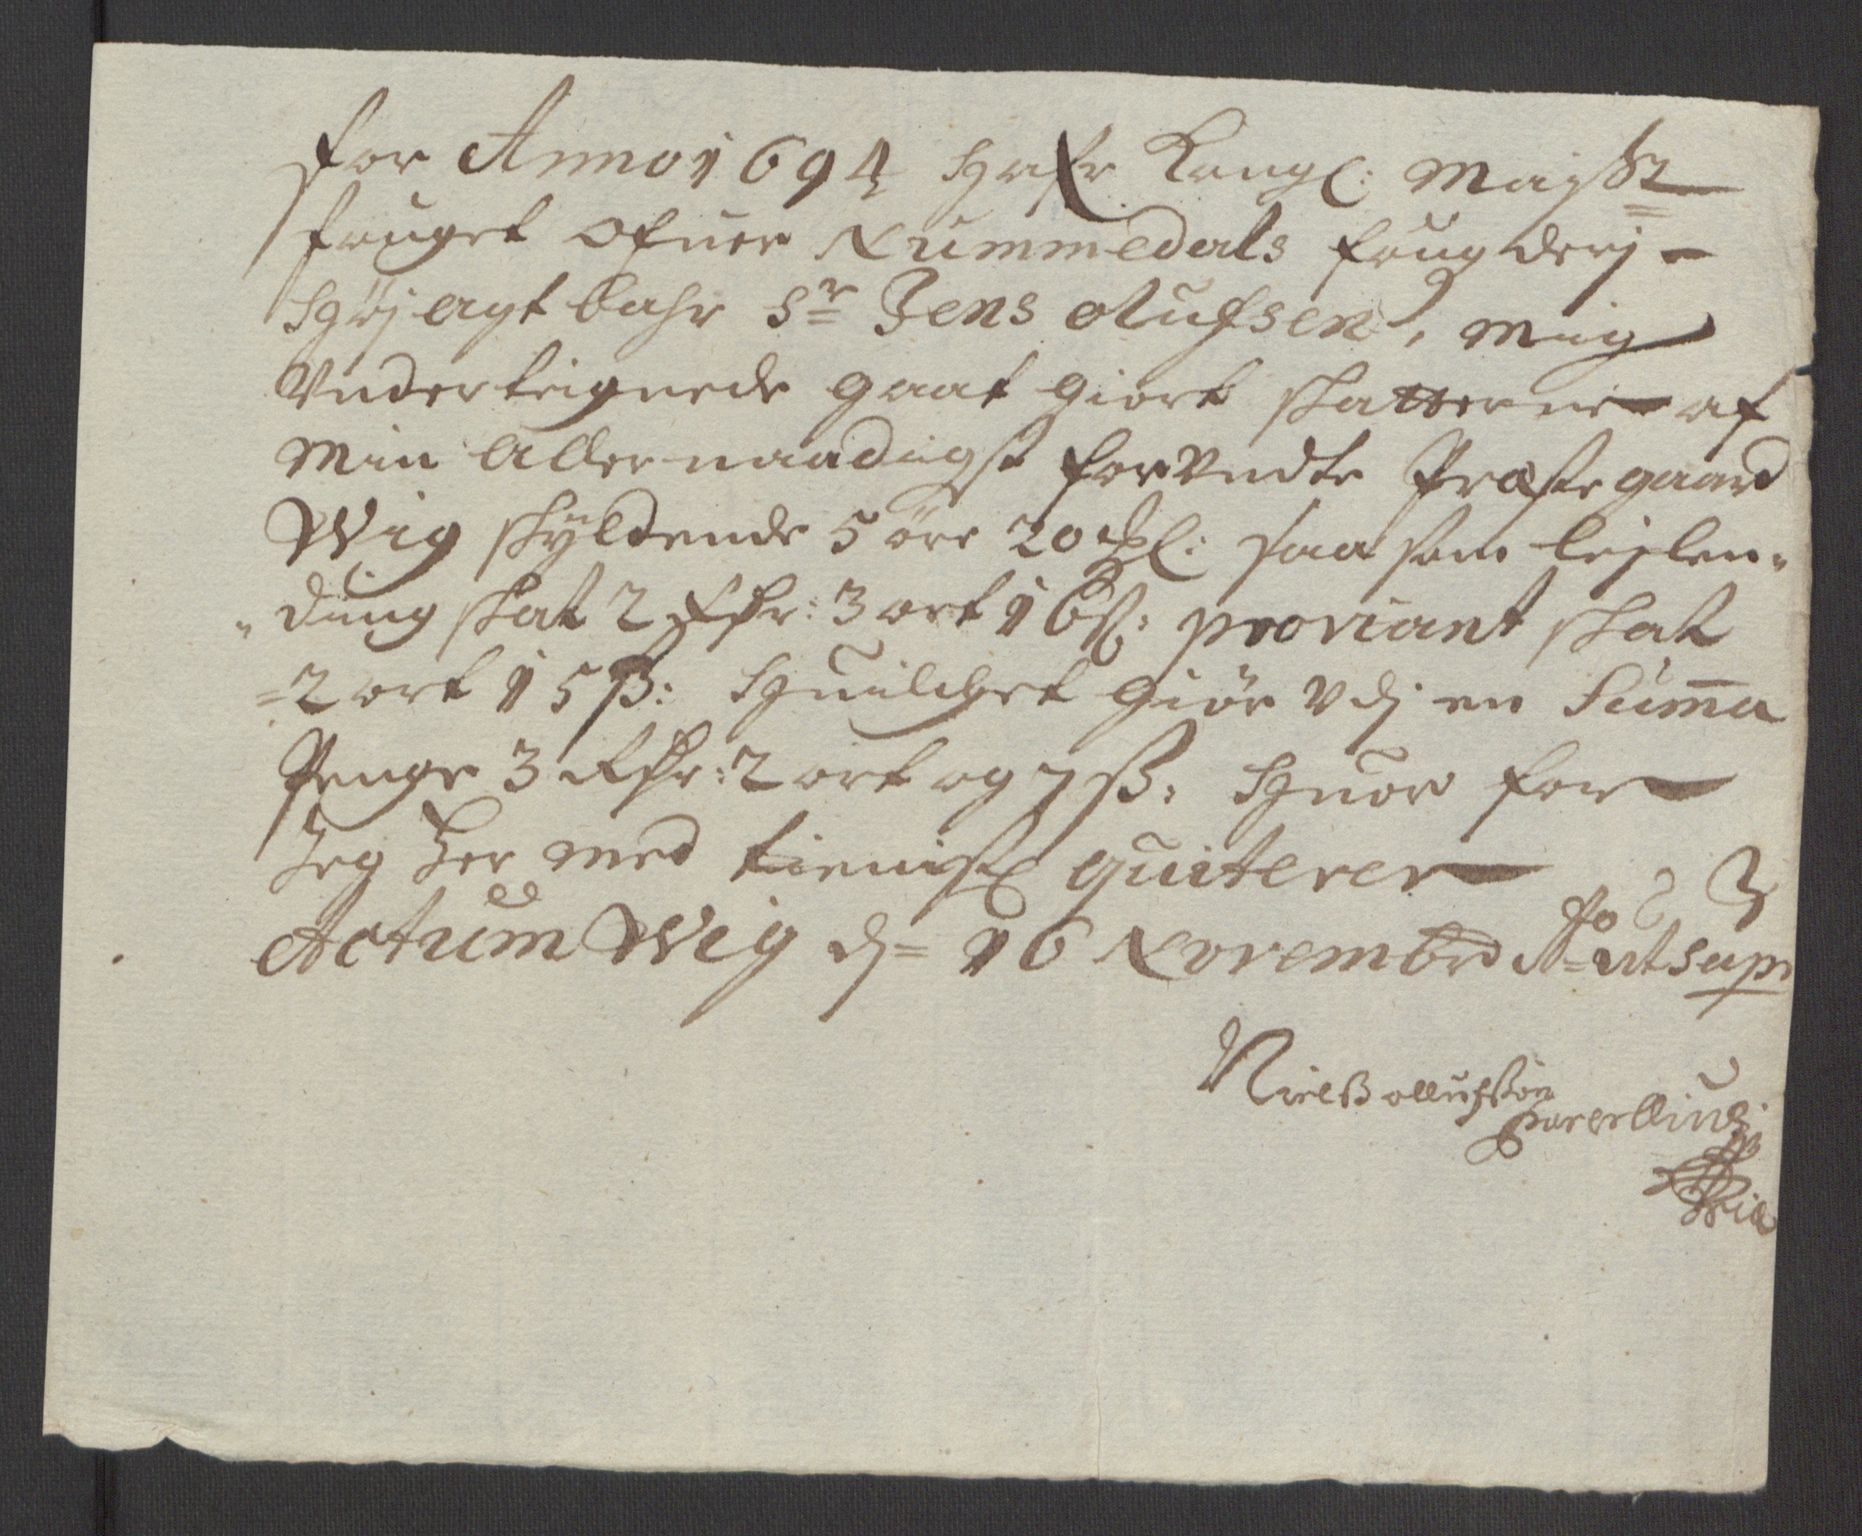 for Anno 1694 Hafr Kongl: Mayßt
fouget Ofuer Nummedals fougderj -
Høj agt bahr Sr Jens Olufsen, mig
Vnderteignede gaat giort skatterne af
Min Allernaadigst forundte Præstegaard
Wig skyldende 5 öre 20 saa som leilen„
„ding skat 2 Rdr: 3 ort 16ß: proviant skat
=2 ort 15ß: Huilchet giör Vdj en Summa
Penge 3 Rdr: 2 ort og 7ß: Huor for
Jeg Her med tienistl quiterer
Actum Wig dj= 16 Novembr Ao= ut supr
Nielß Ollufßön